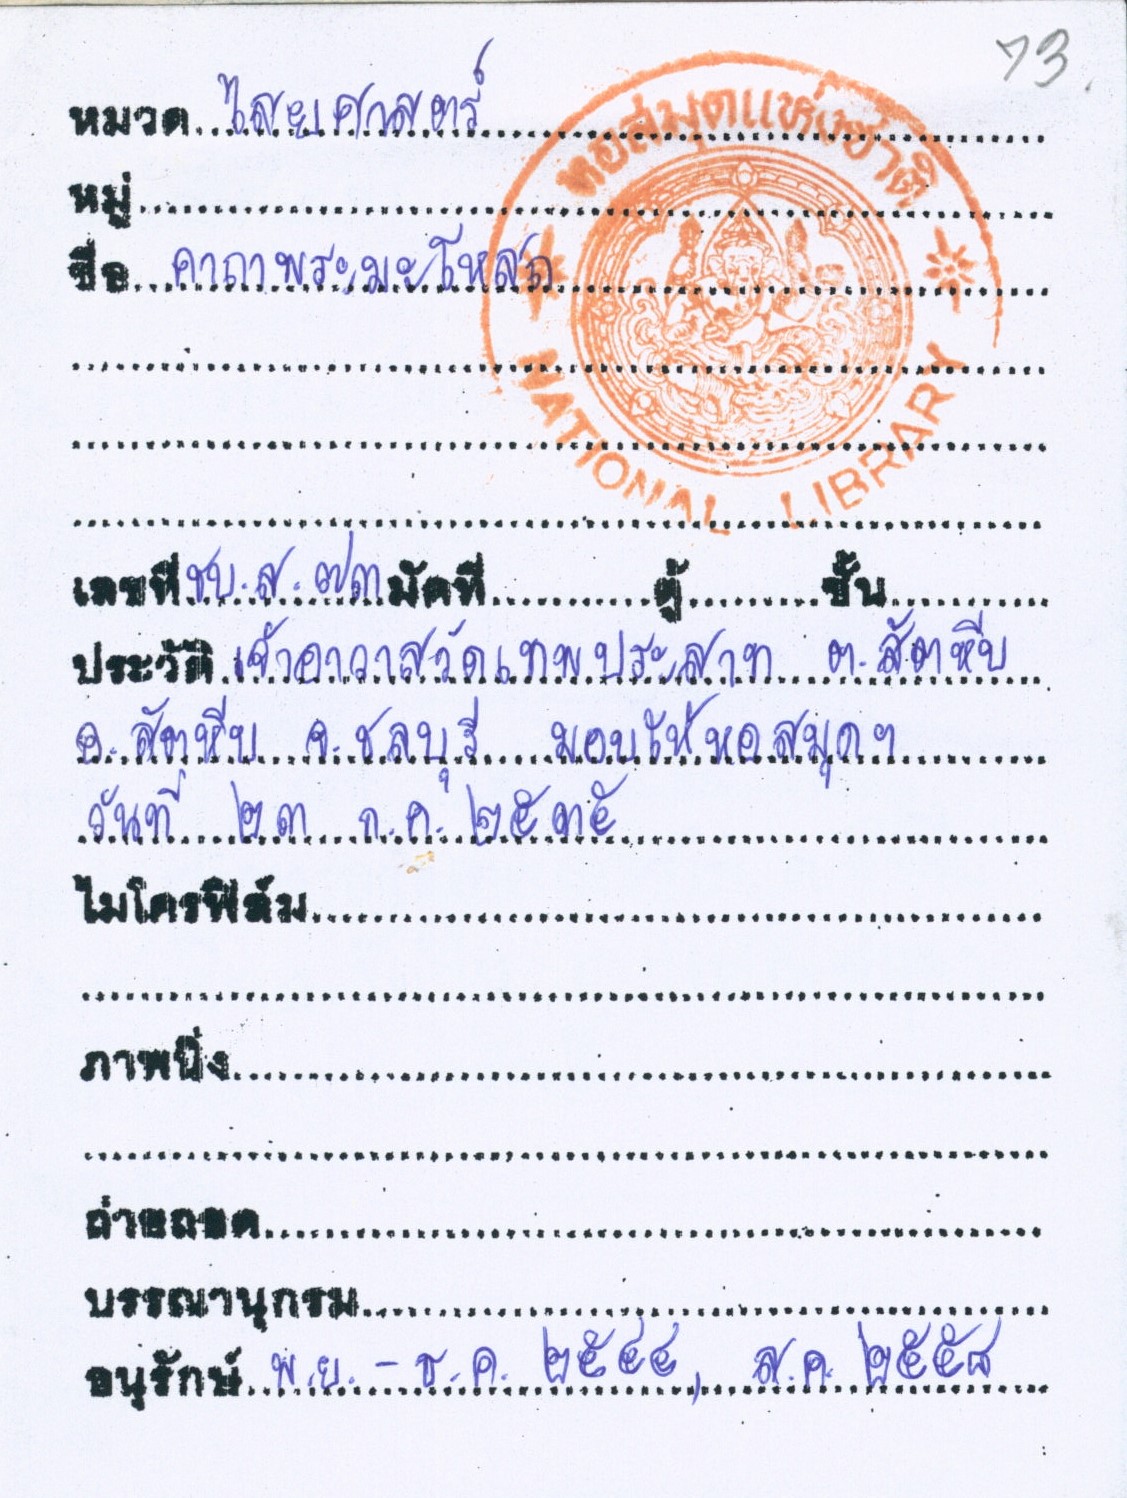 73
หมวด ไสยศาสตร์
หอสมุดแห่งชาติ
หมู่
ชื่อ คาถาพระมะโหสถ
NATIONAL LIBRARY
เลขที่ ชบ.ส.๗๓ มัดที่ ตู้ ชั้น
ประวัติ เจ้าอาวาสวัดเทพประสาท ต.สัตหีบ
อ.สัตหีบ จ.ชลบุรี มอบให้หอสมุดฯ
วันที่ ๒๓ ก.ค. ๒๕๓๕
ไมโครฟิล์ม
ภาพนิ่ง
ถ่ายถอด
บรรณานุกรม
อนุรักษ์ พ.ย. - ธ.ค. ๒๕๔๔, ส.ค. ๒๕๕๘